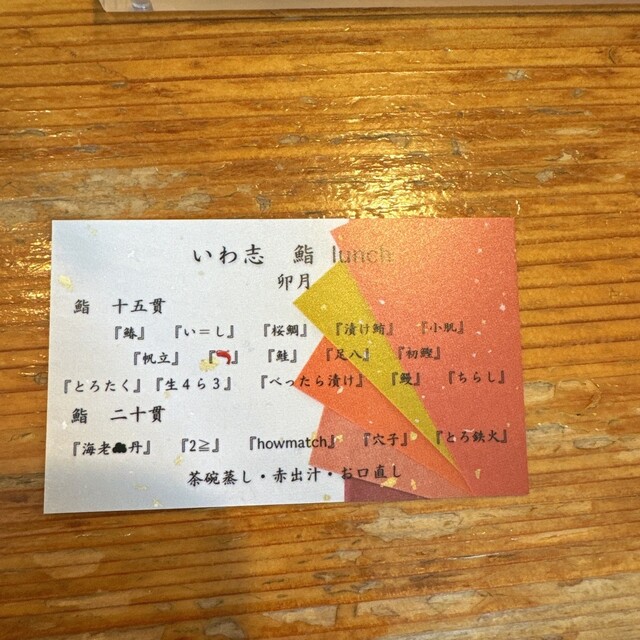 いわ志 鮨 lunch
卯月
鮨 十五貫
『鰆』 『い=し』 『桜鯛』 『漬け鮪』 『小肌』
『帆立』 『🦐』 『鮭』 『足八』 『初鰹』
『とろたく』 『生4ら3』 『べったら漬け』 『鰻』 『ちらし』
鮨 二十貫
『海老丹』 『2≧』 『howmatch』 『穴子』 『とろ鉄火』
茶碗蒸し・赤出汁・お口直し